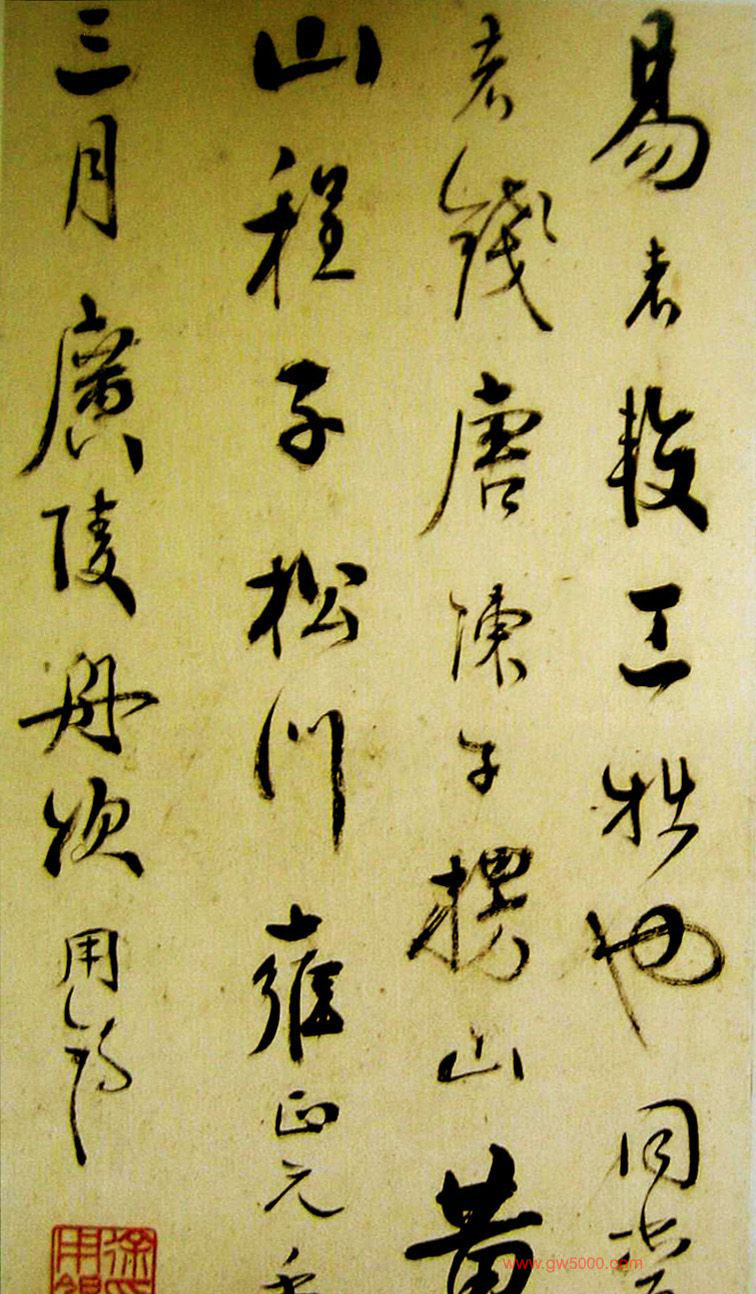 易者鞍三牲也同觀
者錢唐陳子楞山黃
山程子松門雍正元年
三月廣陵舟次用錫
www.gw5000.com